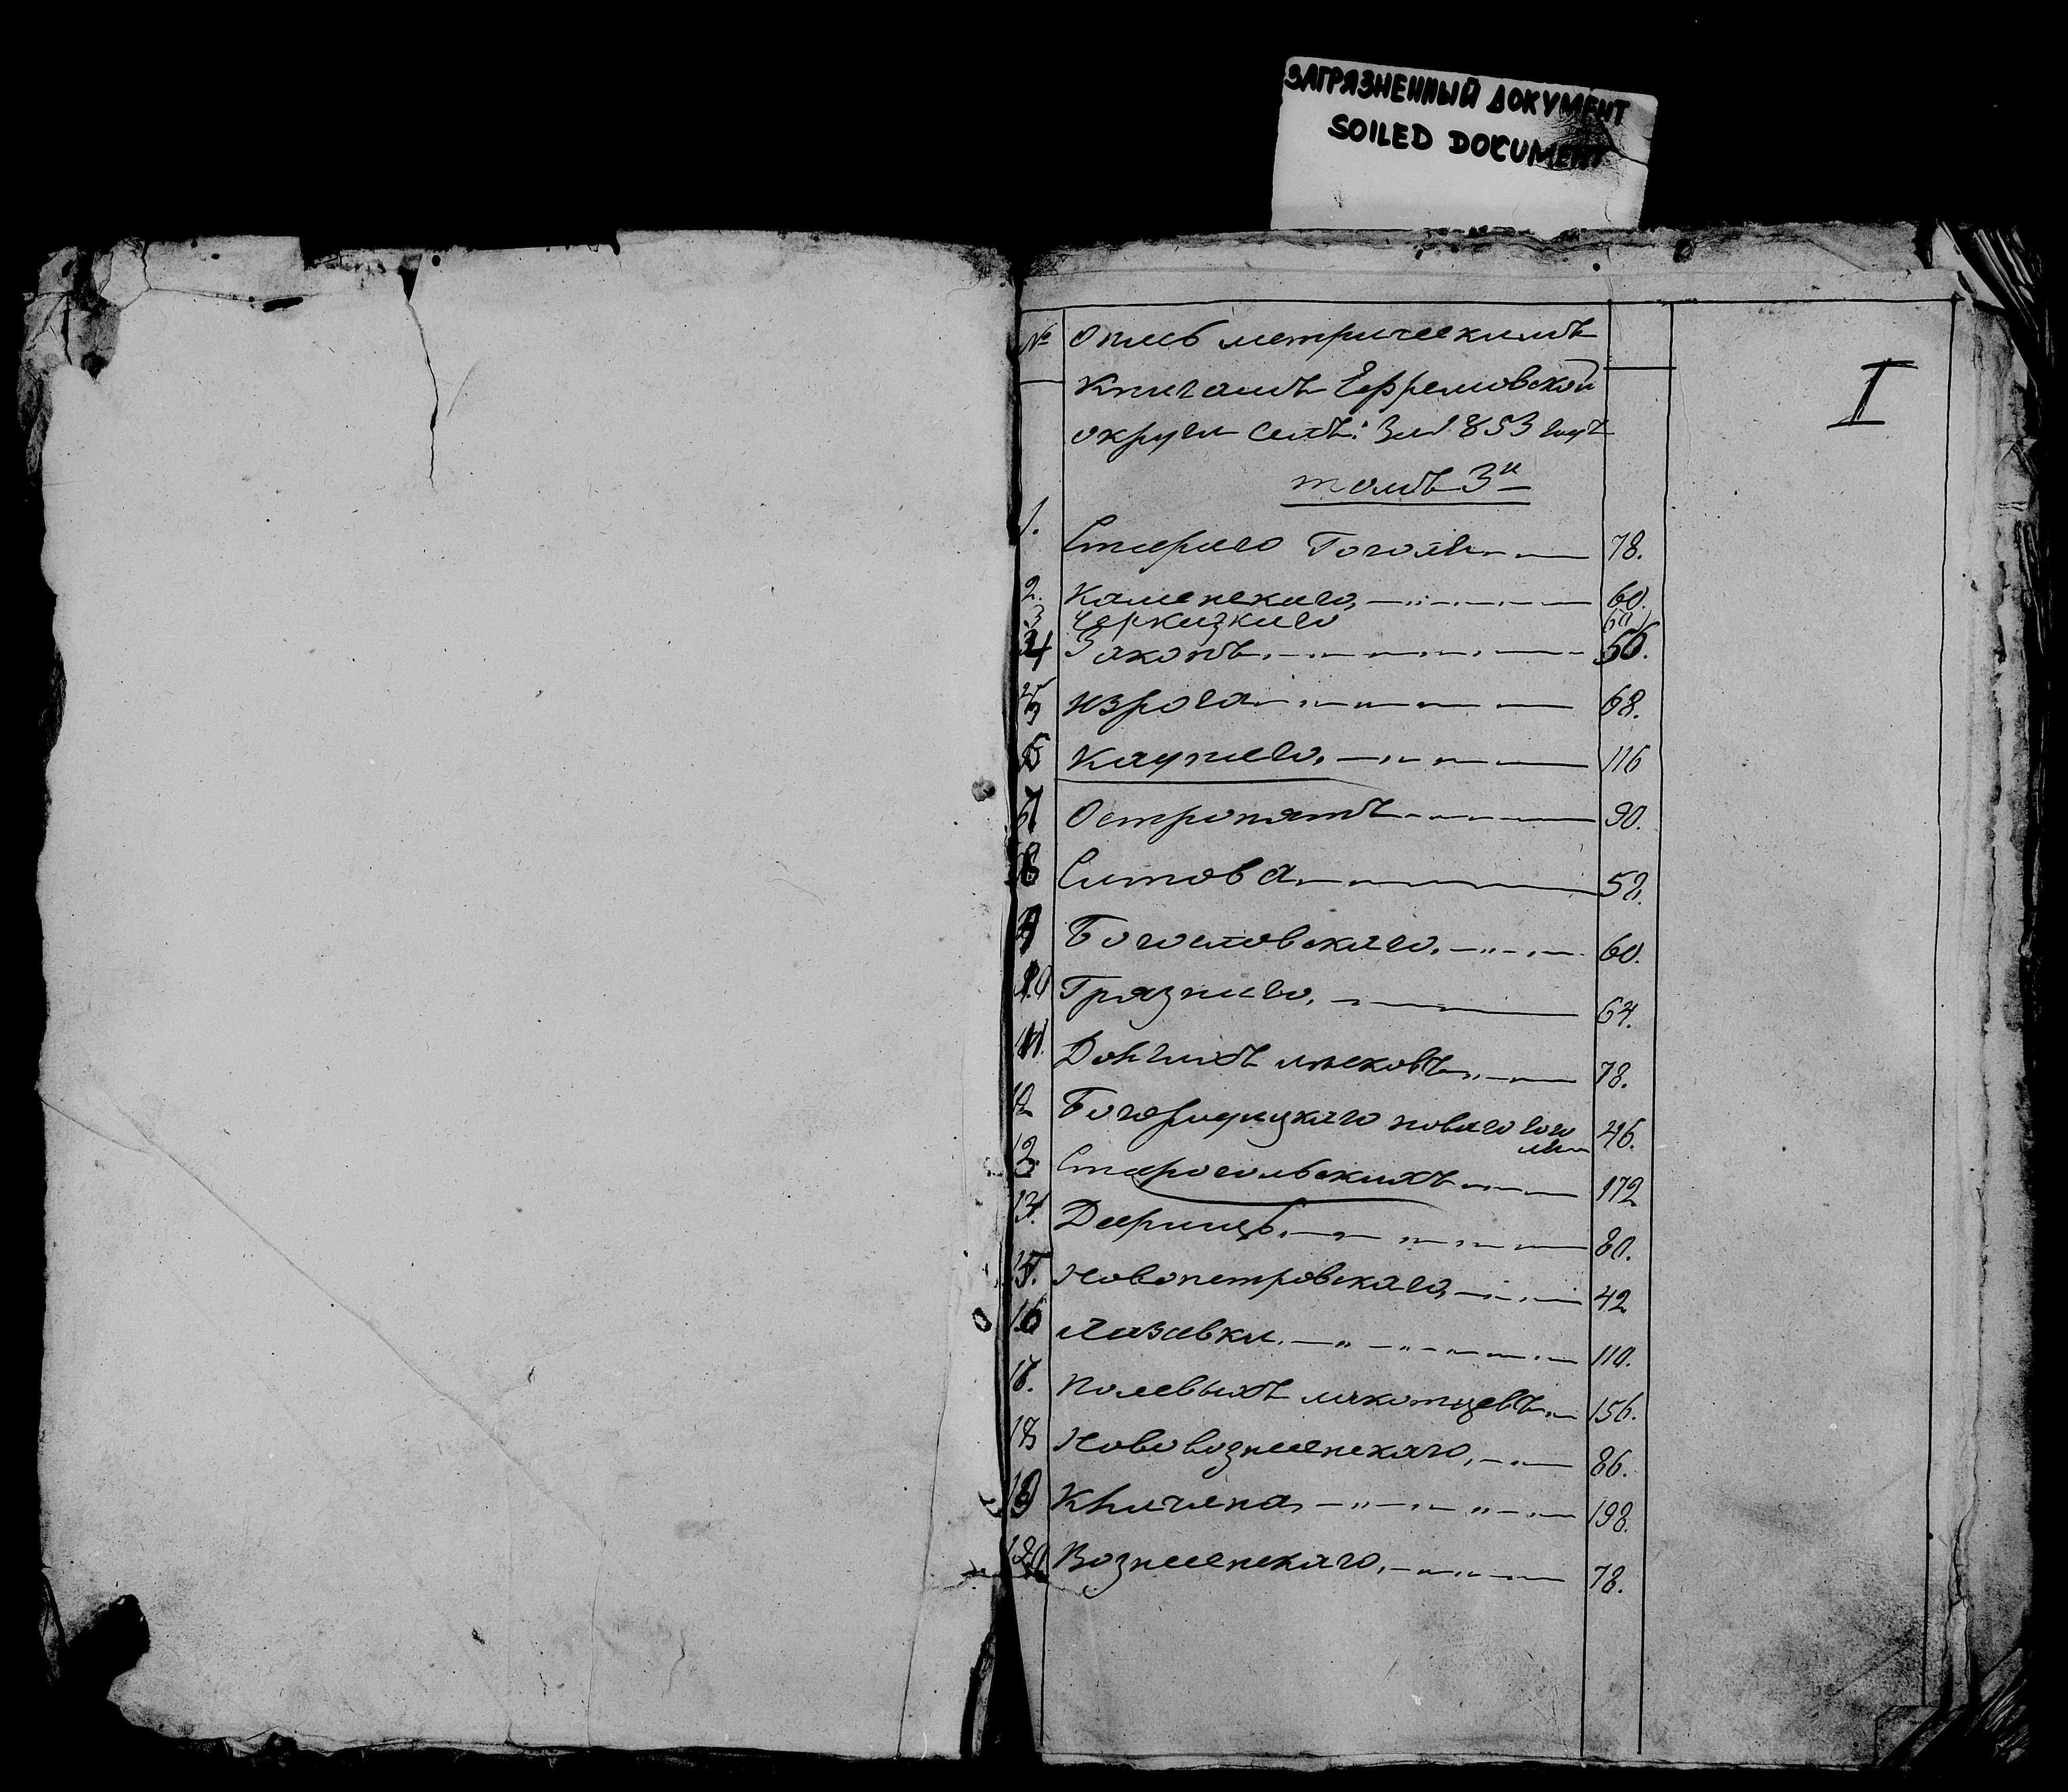 ЗАГРЯЗНЕННЫЙ ДОКУМЕНТ
SOILED DOCUMENT
I
№ Опись метрическимъ
Книгамъ Ефремовской
округи селъ: за 1853 годъ
томъ 3й
1. Стараго Гоголя 78.
2. Каменскаго 60.
3 Черкизкаго
4 Закопъ 50.
5 Изрога 68.
6 Каднаго 116
7 Остропятъ 90.
8 Ситова 52.
9 Богословскаго 60.
10 Грязнаго 64.
11. Долгихъ лѣсковъ 78.
12 Богородицкаго новаго Гого
ля 46.
Старогольскихъ 172
Дарищъ 80.
15. Новопетровскаго 42
16 Лазавки 110.
Полевыхъ локотцевъ 156.
18 Нововознесенскаго 86.
19 Кличена 198.
20 Вознесенскаго 78.